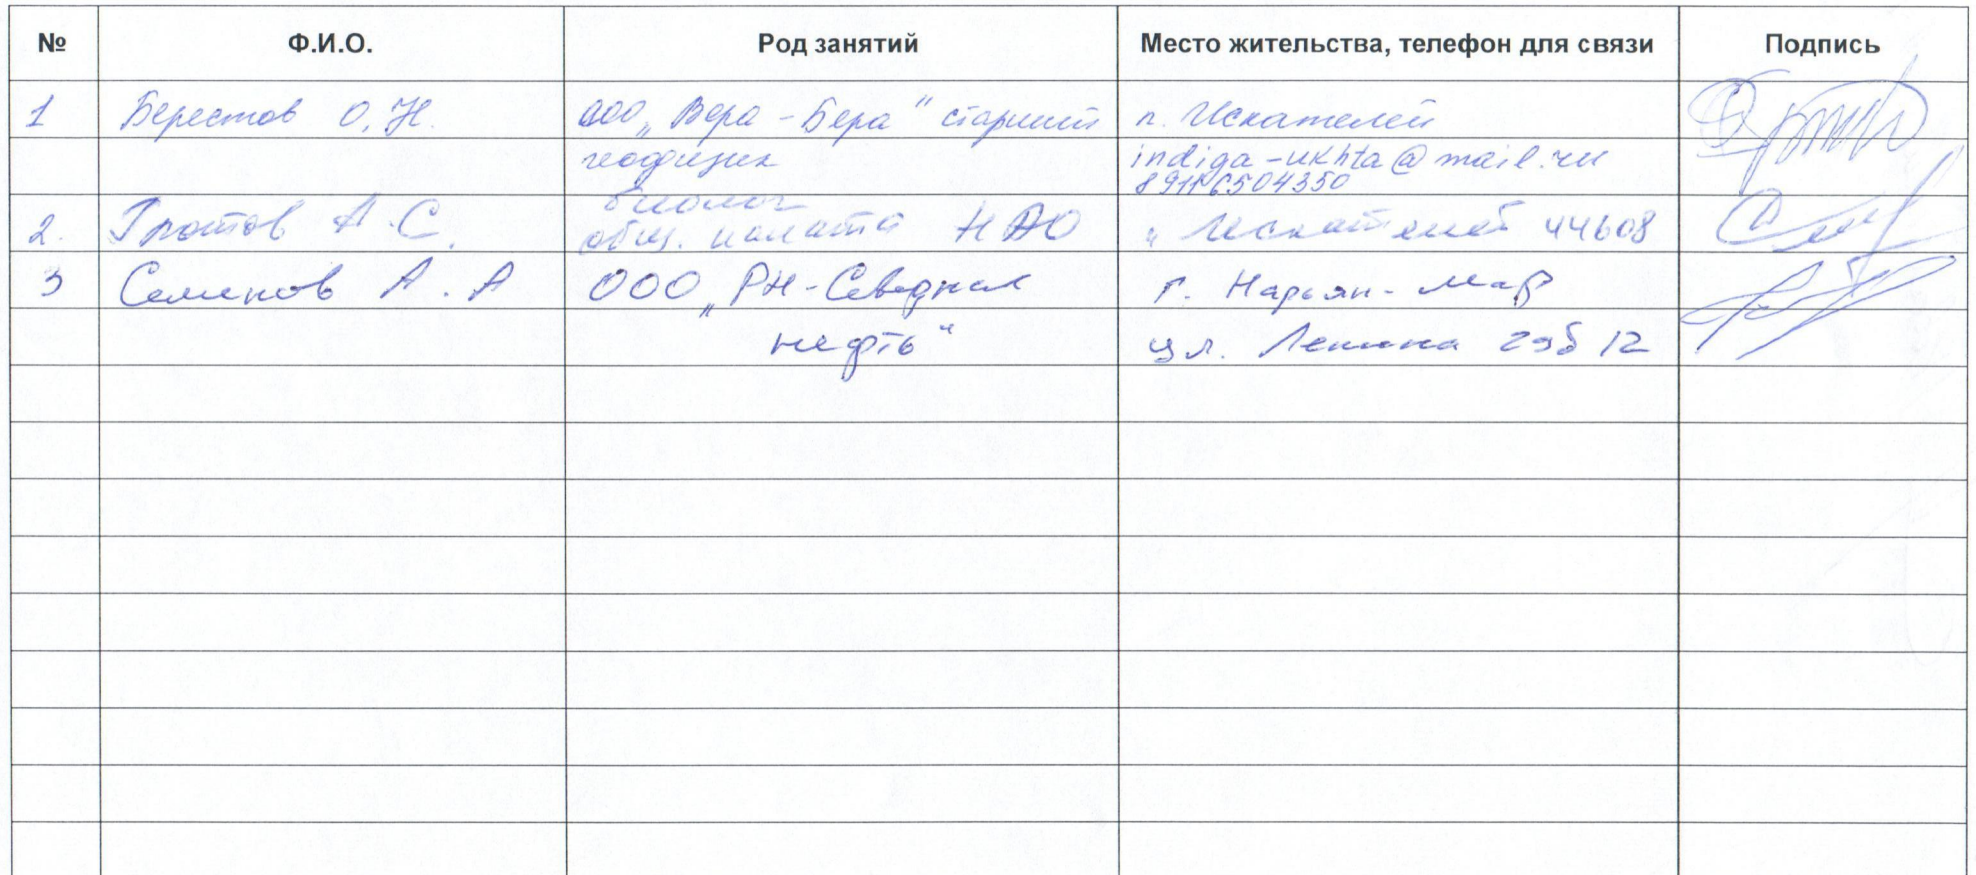 № Ф.И.О. Род занятий Место жительства, телефон для связи Подпись
1 Берестов О.Н. ООО „Вера-Бера" старший п. Искателей
геофизик indiga-ukhta@mail.ru
89116504350
биолог
2. А.С. общ. палата НАО п Искателей 44608
3 Семенов А.А ООО „РН-Северная г. Нарьян-Мар
нефть" ул. Ленина 29б 12